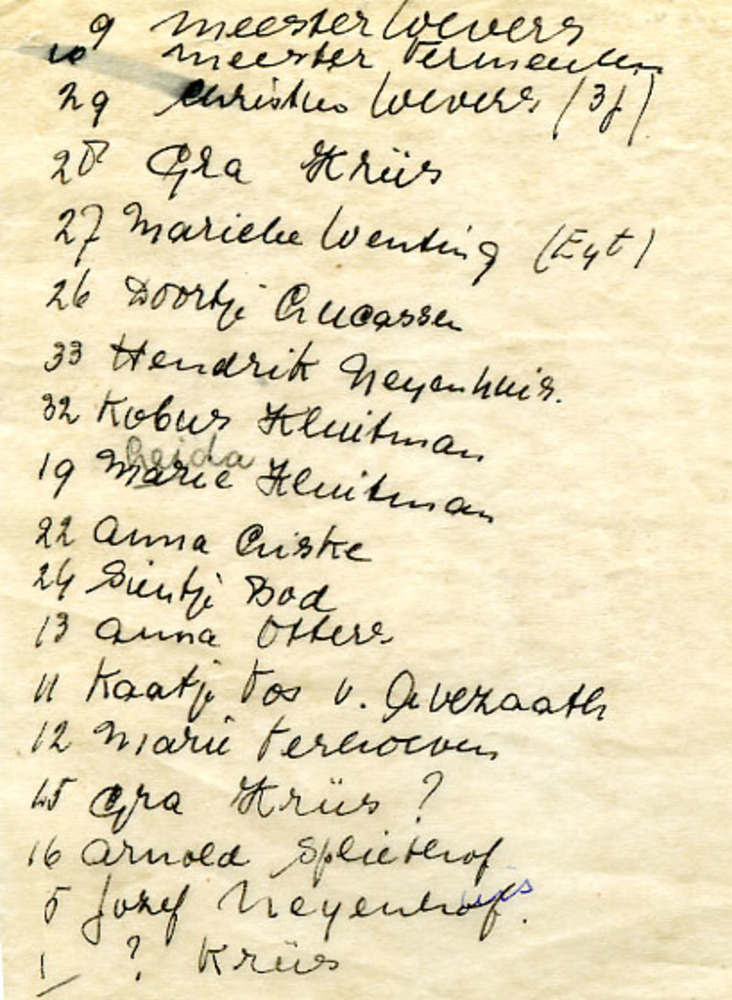 9 meester Wevers
10 meester Vermeulen
29 Christien Wevers (3j)
28 Gra Krüs
27 Marieke Wenting (Eyt)
26 Doortje Lucassen
33 Hendrik Neyenhuis.
32 Kobus Kluitman
heida
19 Marie Kluitman
22 Anna Criske
24 Sientje Bod
13 Anna Otters
11 Kaatje Vos v. Avezaath
12 Marie Verhoeven
15 Gra Krüs ?
16 Arnold Spliethof
5 Jozef Neyenhof. uis
1 ? Krüs